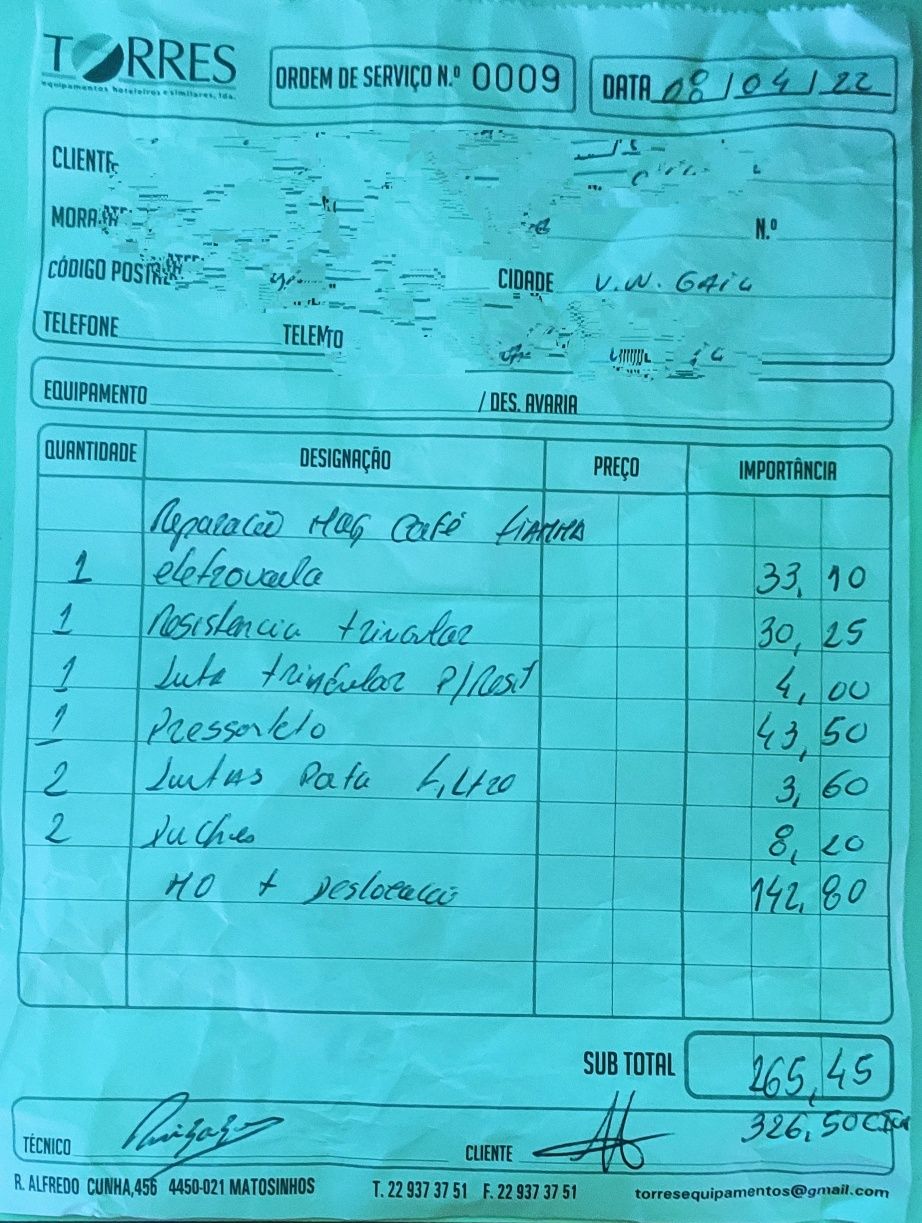 TORRES
equipamentos hoteleiros e similares, lda.
ORDEM DE SERVIÇO N.º 0009
DATA 08/04/22
CLIENTE
MORA
N.º
CÓDIGO POSTAL
CIDADE V.N. GAIA
TELEFONE
TELEM
EQUIPAMENTO / DES. AVARIA
QUANTIDADE DESIGNAÇÃO PREÇO IMPORTÂNCIA
Reparação Maq Café FIAMMA
1 eletrovaula 33,10
1 Resistencia trincular 30,25
1 Juta trinéular P/Resist 4,00
1 Pressorteto 43,50
2 Juntas Pata Filtro 3,60
2 Duches 8,20
MO + Deslocação 142,80
SUB TOTAL 265,45
326,50
TÉCNICO
CLIENTE
R. ALFREDO CUNHA,456 4450-021 MATOSINHOS T. 22 937 37 51 F. 22 937 37 51 torresequipamentos@gmail.com